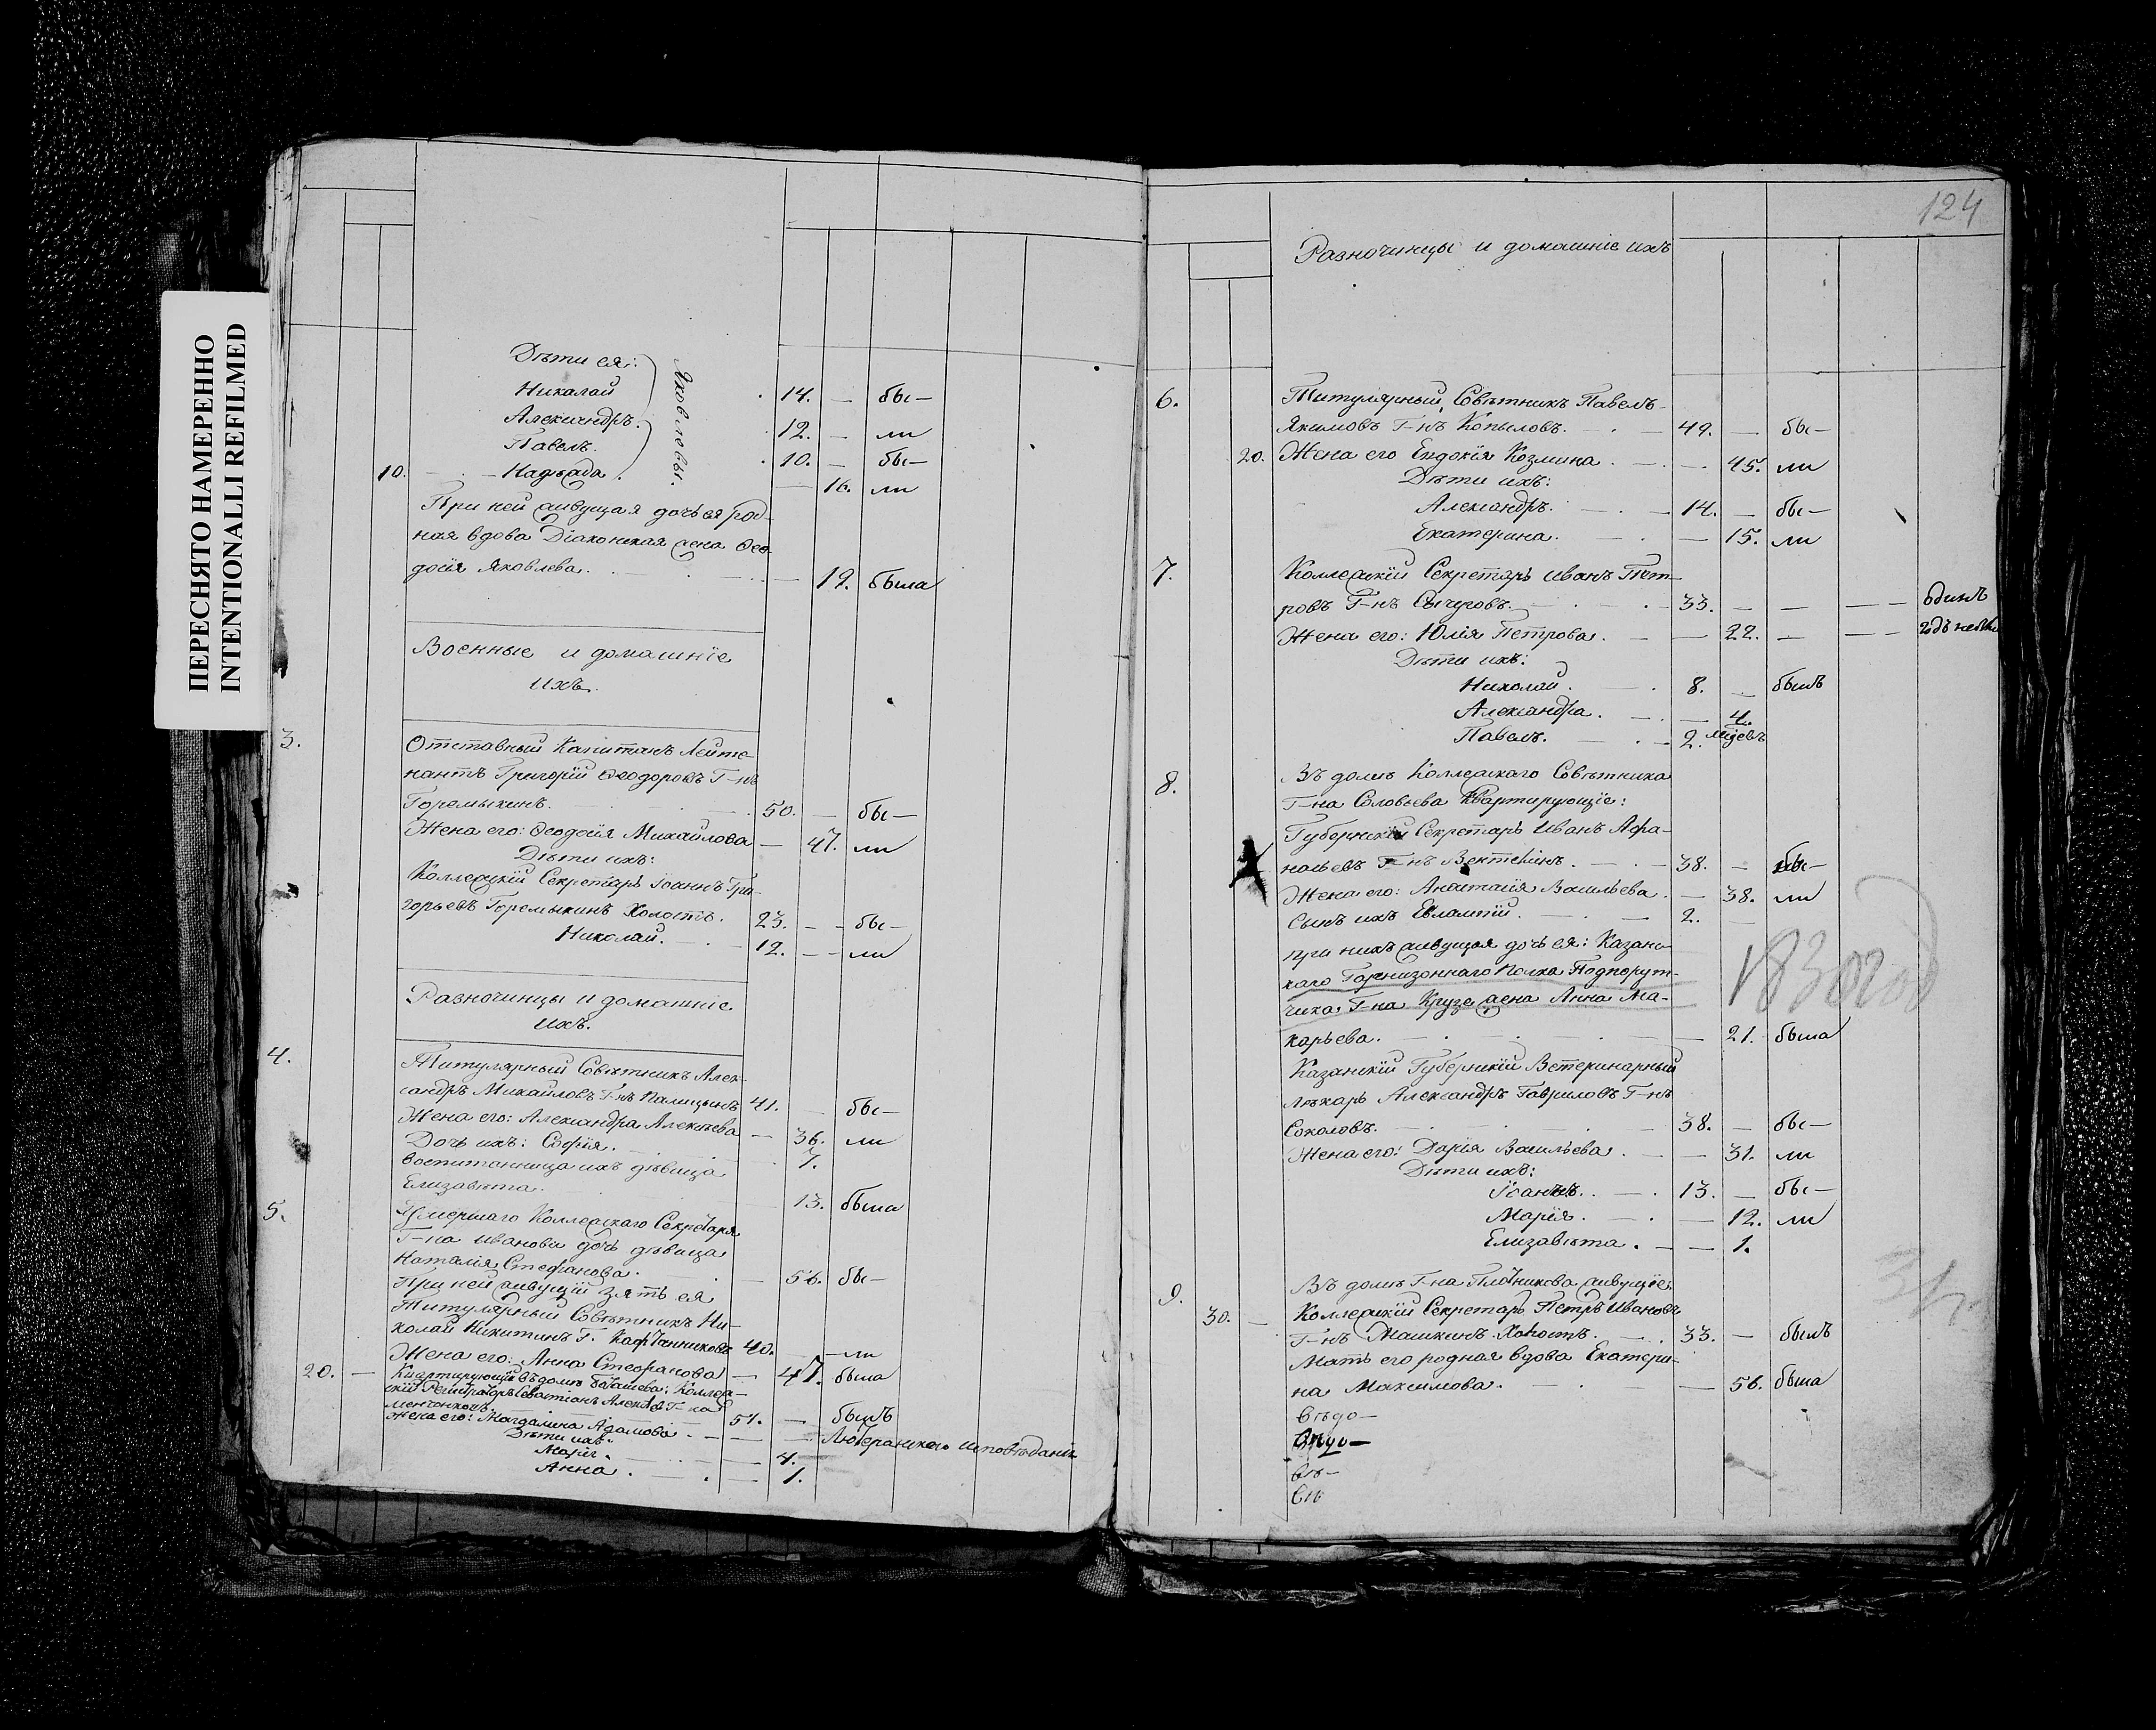 ПЕРЕСНЯТО НАМЕРЕННО
INTENTIONALLI REFILMED
Дѣти ея:
Николай 14. — бы—
Александръ. 12. — ли
Павелъ. 10. — бы—
10. Надѣжда. 16. ли
Яковлевы.
При ней живущая дочь ея род-
ная вдова Діаконская жена Ѳео
досія Яковлева. 19. была
Военные и домашніе
ихъ.
3. Отставный Капитанъ Лейте-
нантъ Григорій Ѳеодоровъ Г-нъ
Горемыкинъ. 50. — бы—
Жена его: Ѳеодосія Михайлова — 47. ли
Дѣти ихъ:
Коллежскій Секретарь Іоаннъ Гри-
горьевъ Горемыкинъ Холостъ. 23. — бы—
Николай. 12. — ли
Разночинцы и домашніе
ихъ.
4. Титулярный Совѣтникъ Алек-
сандръ Михайловъ Г-нъ Палицынъ 41. бы—
Жена его: Александра Алексѣева — 36. ли
Дочь ихъ: Софія. 7.
Воспитанница ихъ дѣвица
Елизавѣта. 13. была
5. Умершаго Коллежскаго Секретаря
Г-на Иванова дочь дѣвица
Наталія Стефанова. — 56. бы—
При ней живущій зять ея
Титулярный Совѣтникъ Ни-
колай Никитинъ Г. Кафтанниковъ 40. — ли
Жена его: Анна Стефанова — 47. была
20. — Квартирующій въ домѣ Коллеж-
скій Регистраторъ Севастіанъ Алексѣевъ Г-нъ
51. — былъ
Жена его: Магдалина Адамова. — Лютеранскаго исповѣданія
Дѣти ихъ:
Марія. — 4.
Анна. — 1.
124
Разночинцы и домашніе ихъ
6. Титулярный Совѣтникъ Павелъ
Якимовъ Г-нъ Копыловъ. — 49. — бы—
20. Жена его Евдокія Козмина. — 45. ли
Дѣти ихъ:
Александръ. — 14. — бы—
Екатерина. — 15. ли
7. Коллежскій Секретарь Иванъ Пет-
ровъ Г-нъ Сычуговъ. — 33. — — — одинъ
Жена его: Юлія Петрова. — 22. — — — годъ
Дѣти ихъ:
Николай. — 8. — былъ
Александра. — 4.
Павелъ. — 2.
8. Въ домѣ Коллежскаго Совѣтника
Г-на Соловьева Квартирующіе:
Губернскій Секретарь Иванъ Афа-
насьевъ Г-нъ — 38. — бы—
Жена его: Анастасія Васильева. — 38. ли
Сынъ ихъ Евлампій. — 2.
при нихъ живущая дочь ея: Казанс-
каго Горнизоннаго полка Подпорут-
чика Г-на Крузе жена Анна Ма-
карьева. — 21. была
1830 год
Казанскій Губернскій Ветеринарный
Лѣкарь Александръ Гавриловъ Г-нъ
Соколовъ. — 38. — бы—
Жена его: Дарія Васильева. — 31. ли
Дѣти ихъ:
Іоаннъ. — 13. — бы—
Марія. — 12. ли
Елизавѣта. — 1.
9. Въ домѣ Г-на Плотникова живущіе:
30. — Коллежскій Секретарь Петръ Ивановъ
Г-нъ Машкинъ Холостъ. — 33. — былъ
Мать его родная вдова Екатери-
на Максимова. — 56. была